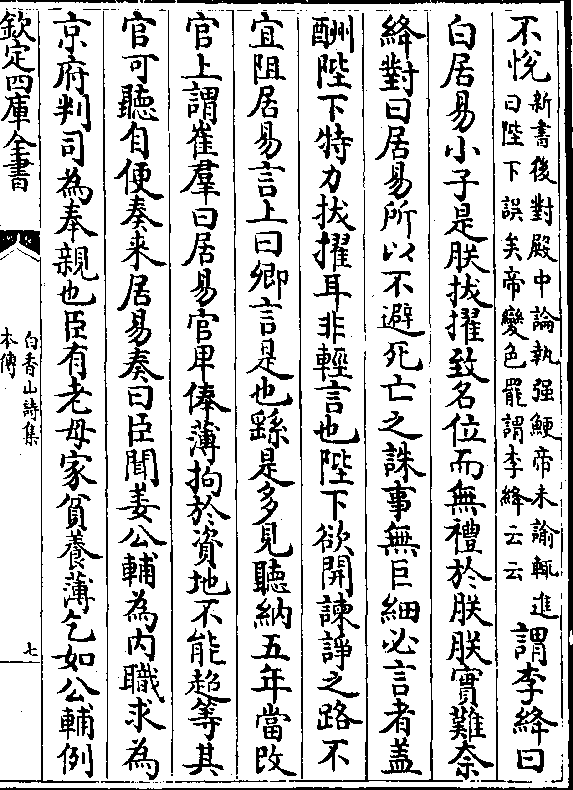 不悅新書後對殿中論執强鯁帝未諭輒進
曰陛下誤矣帝變色罷謂李絳云云謂李絳曰
白居易小子是朕拔擢致名位而無禮於朕朕實難奈
絳對曰居易所以不避死亡之誅事無巨細必言者盖
酬陛下特力拔擢耳非輕言也陛下欲開諫諍之路不
宜阻居易言上曰卿言是也繇是多見聽納五年當改
官上謂崔羣曰居易官卑俸薄拘於資地不能超等其
官可聽自便奏来居易奏曰臣聞姜公輔為内職求為
京府判司為奉親也臣有老母家貧養薄乞如公輔例
欽定四庫全書
白香山詩集
本傳
七